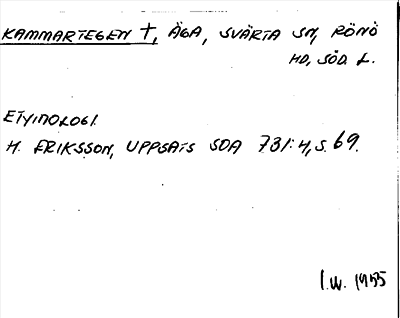 KAMMARTEGEN †, ÄGA, SVÄRTA SN, RÖNÖ
HD, SÖD. L.
ETYMOLOGI.
H. ERIKSSON, UPPSATS SOA 731:4, S. 69.
I.W. 1955